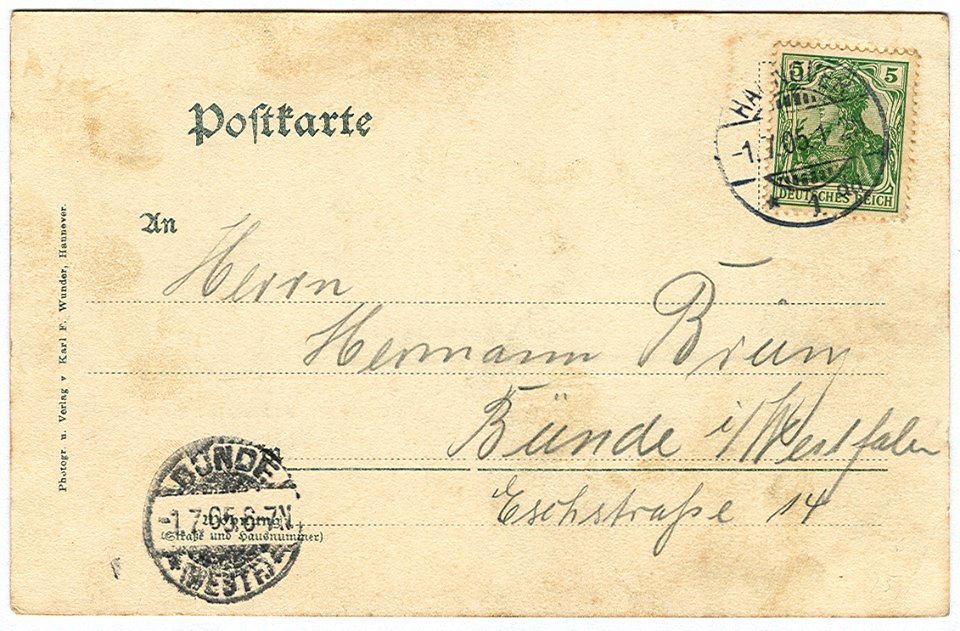 Postkarte
5 5
HANNOVER
-1.7.05.
* 1
DEUTSCHES REICH
An
Herrn
Hermann
Bünde i/Westfalen
Eschstraße 14
BÜNDE
-1.7.05.6-7N
*(WESTF.)*
Wohnung
(Straße und Hausnummer)
Photogr u. Verlag v Karl F. Wunder, Hannover.